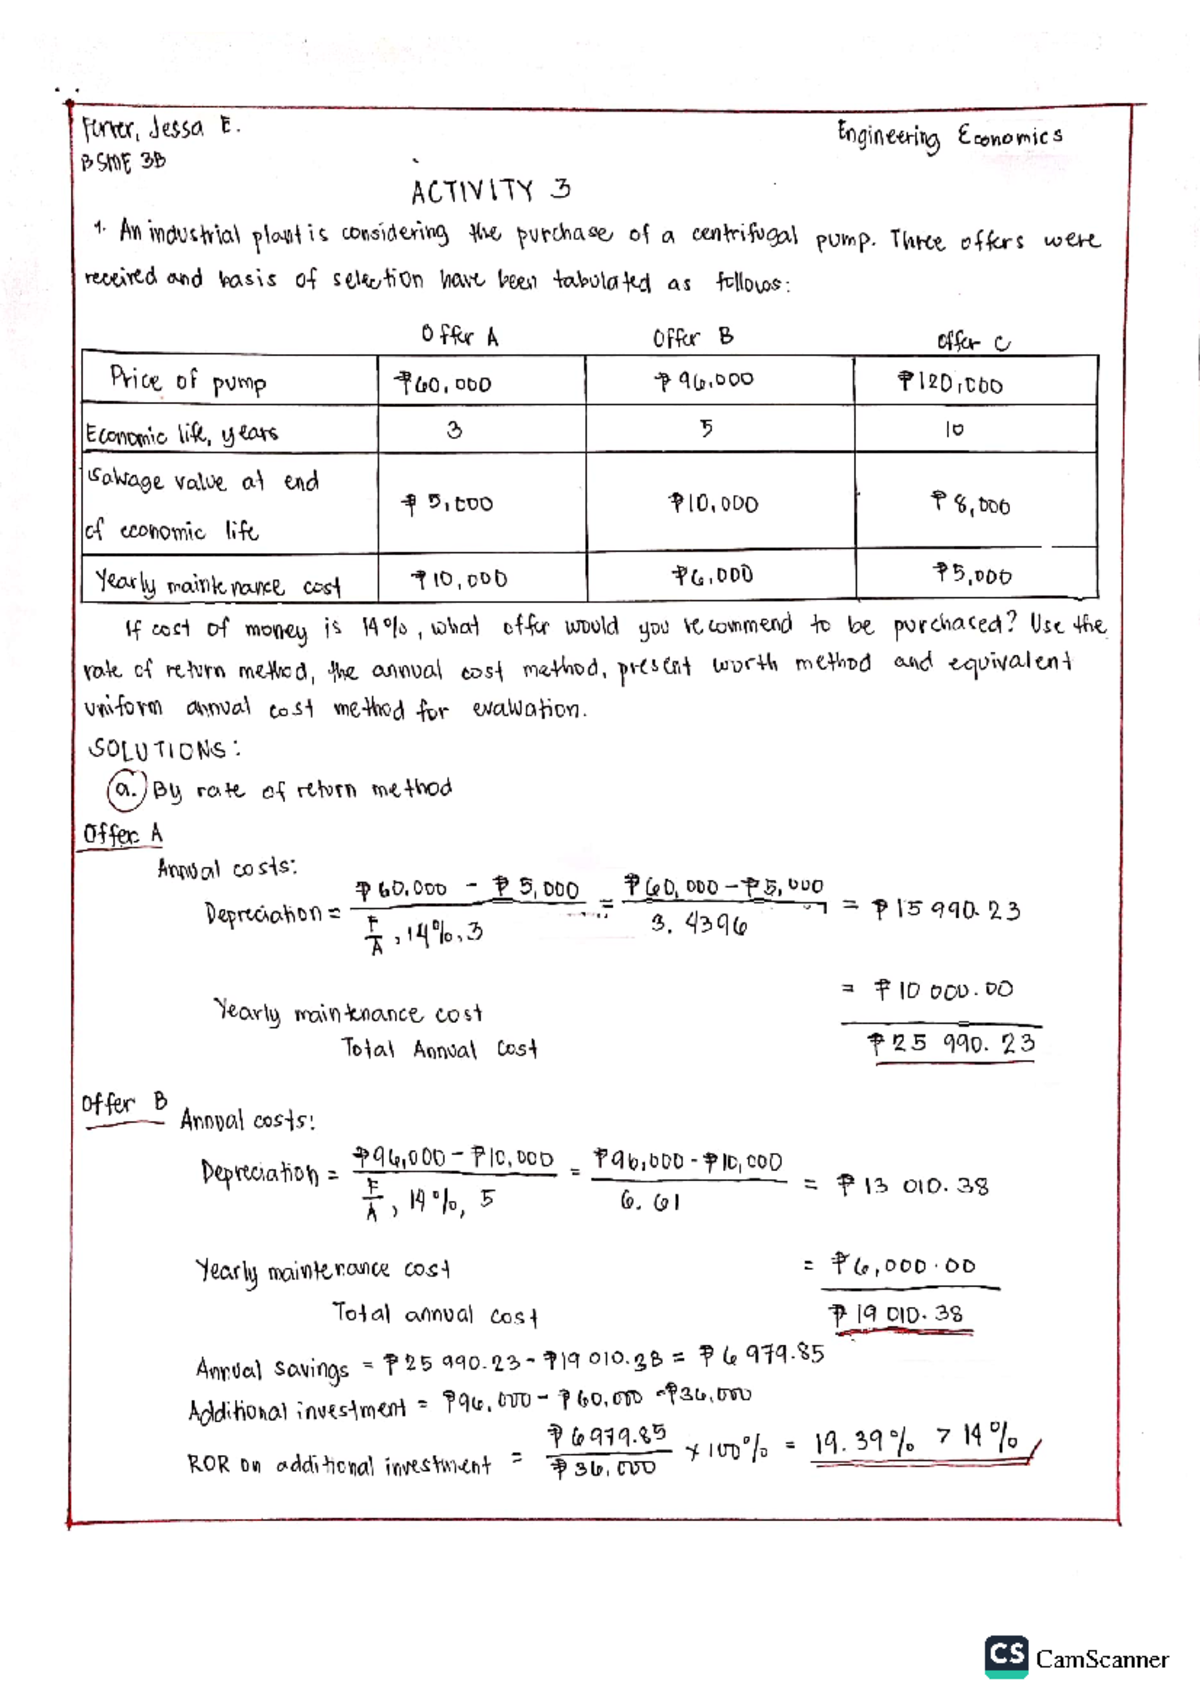 Ferrer, Jessa E.
Engineering Economics
BSME 3B
ACTIVITY 3
1. An industrial plant is considering the purchase of a centrifugal pump. Three offers were
received and basis of selection have been tabulated as follows:
Offer A Offer B Offer C
Price of pump ₱60,000 ₱96,000 ₱120,000
Economic life, years 3 5 10
Salvage value at end
of economic life ₱5,000 ₱10,000 ₱8,000
Yearly maintenance cost ₱10,000 ₱6,000 ₱5,000
If cost of money is 14%, what offer would you recommend to be purchased? Use the
rate of return method, the annual cost method, present worth method and equivalent
uniform annual cost method for evaluation.
SOLUTIONS:
a. By rate of return method
Offer A
Annual costs:
Depreciation = ₱60,000 - ₱5,000 / F/A, 14%, 3 = ₱60,000 - ₱5,000 / 3.4396 = ₱15 990.23
Yearly maintenance cost = ₱10 000.00
Total Annual Cost ₱25 990.23
Offer B
Annual costs:
Depreciation = ₱96,000 - ₱10,000 / F/A, 14%, 5 = ₱96,000 - ₱10,000 / 6.61 = ₱13 010.38
Yearly maintenance cost = ₱6,000.00
Total annual cost ₱19 010.38
Annual savings = ₱25 990.23 - ₱19 010.38 = ₱6 979.85
Additional investment = ₱96,000 - ₱60,000 = ₱36,000
ROR on additional investment = ₱6979.85 / ₱36,000 × 100% = 19.39% > 14%
CS CamScanner